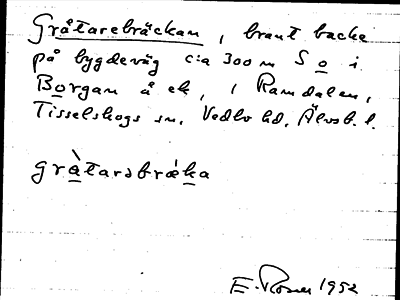 Gråtarebräckan, brant backe
på bygdeväg c:a 300 m S o i
Borgan å ek, i Ramdalen,
Tisselskogs sn, Vedbo hd, Älvsb. l.
gràtarəbrǽka
E. Rosen 1952